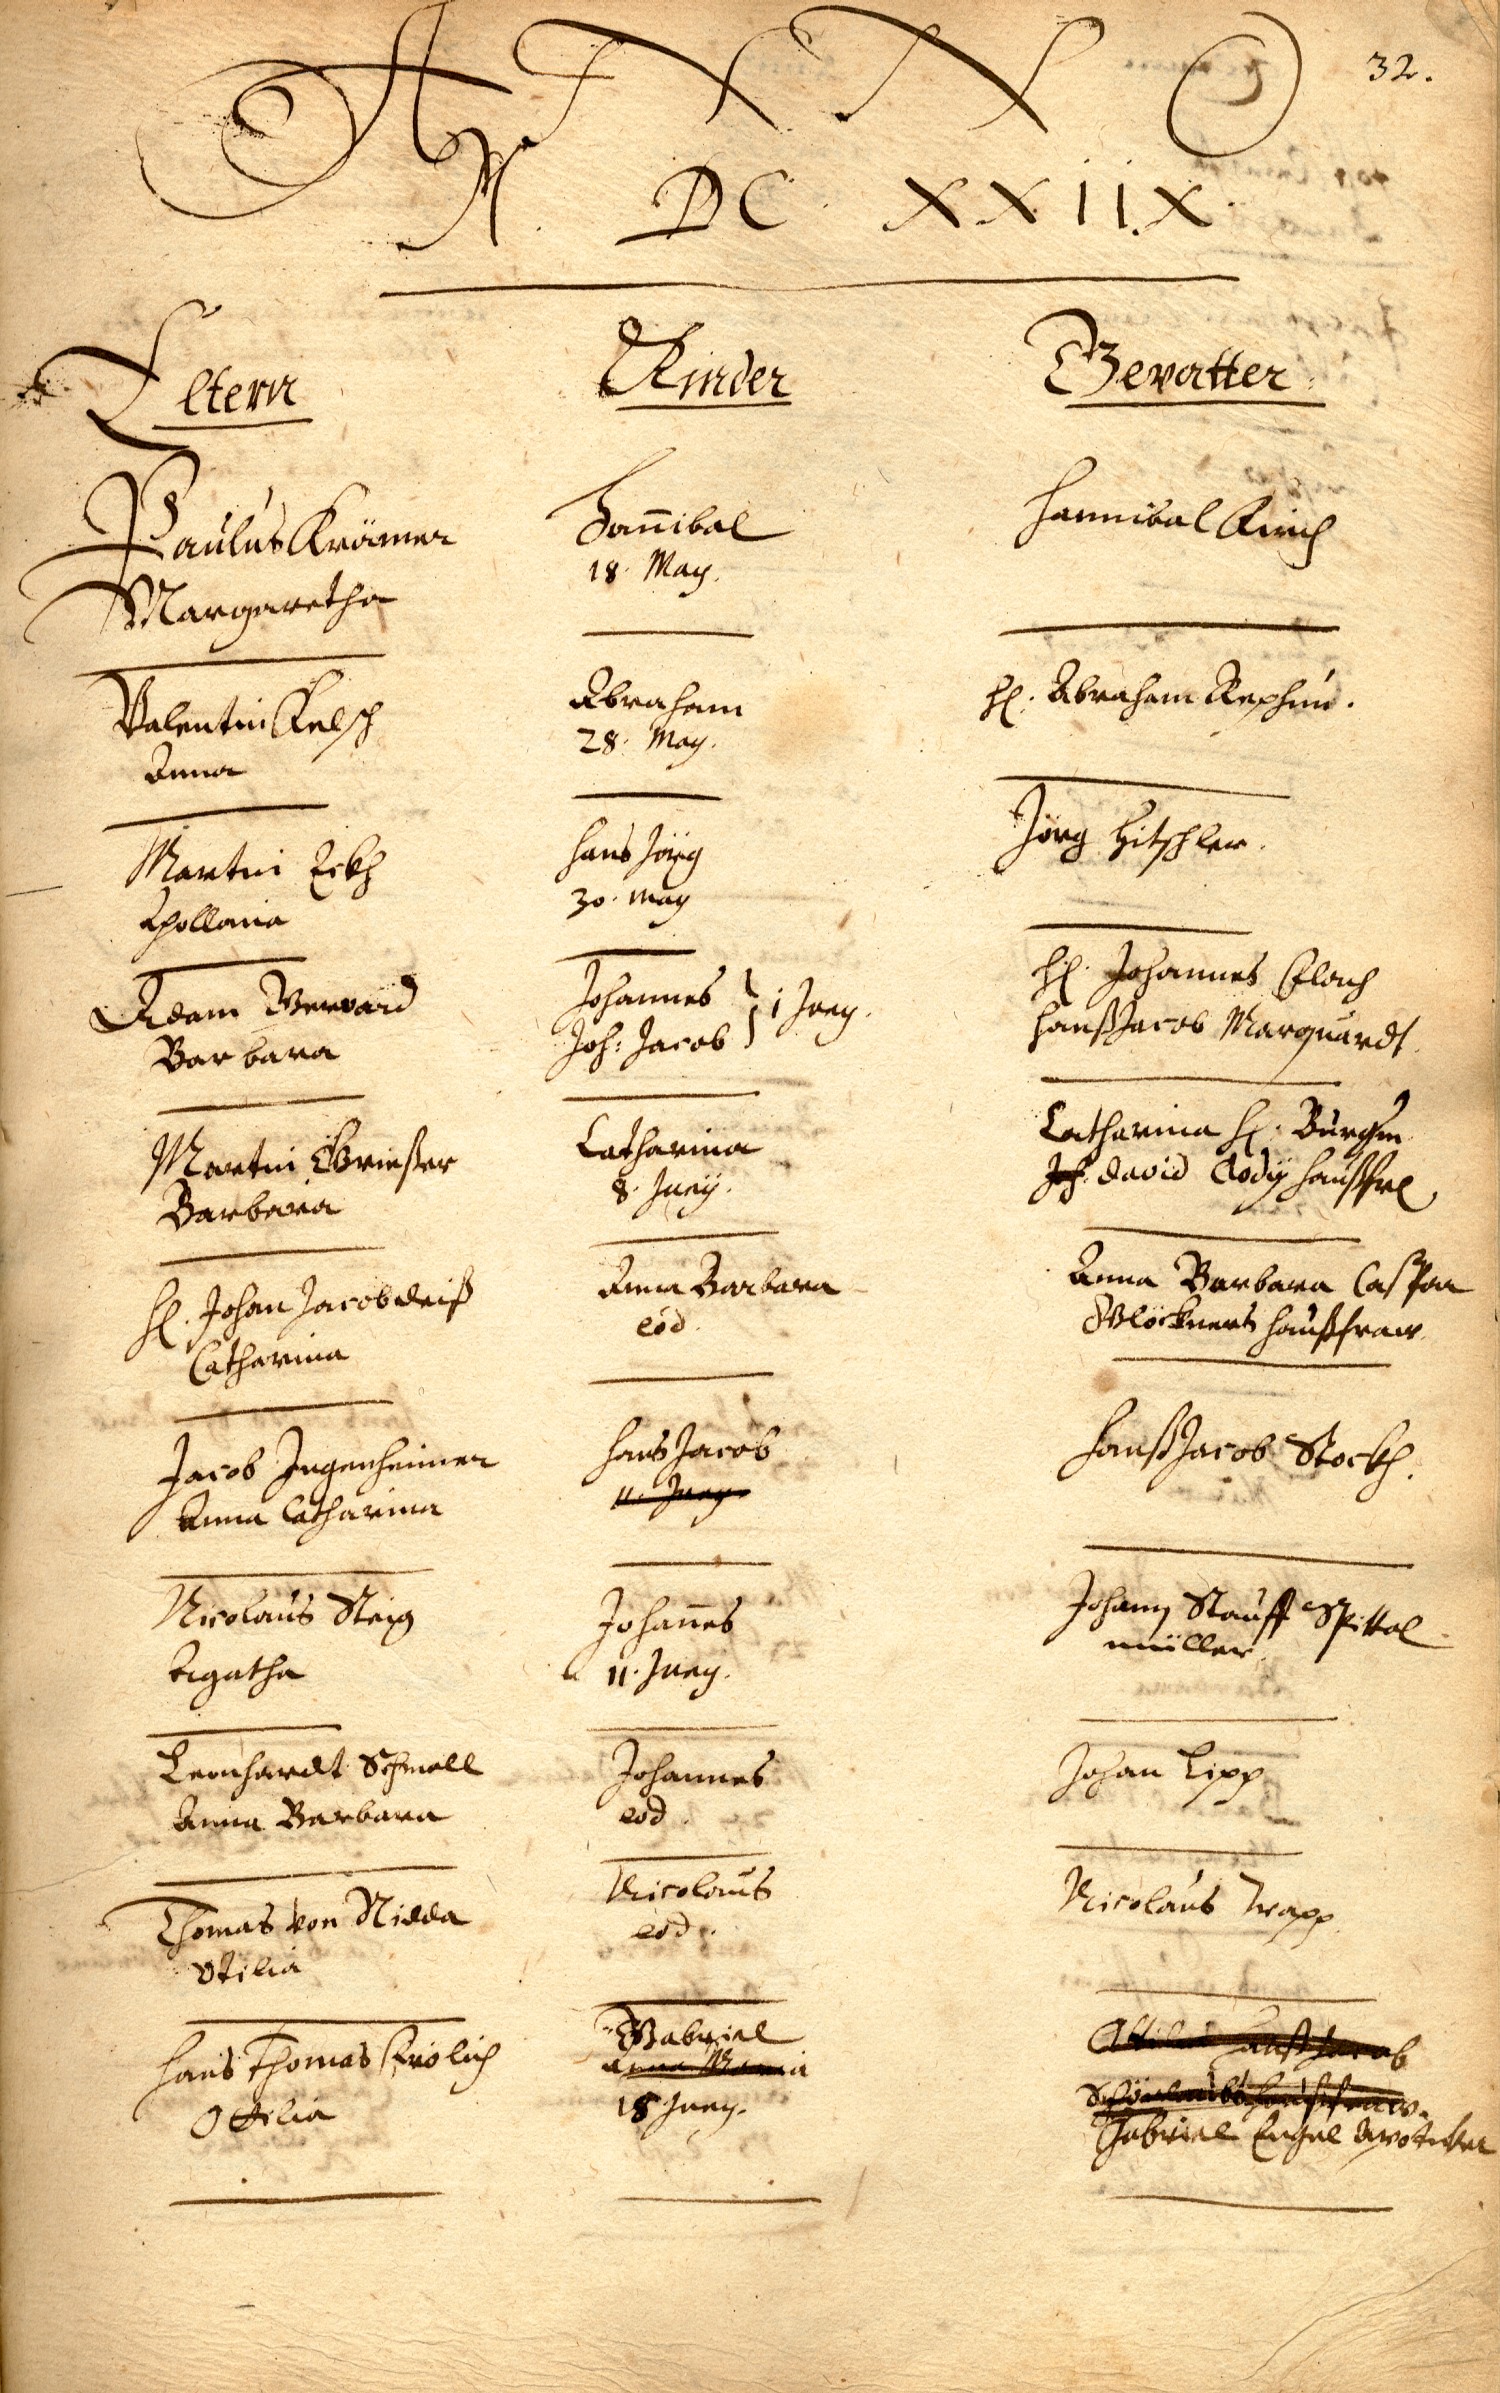 32.
ANNO
M. DC. XXIIX.
Eltern Kinder Gevatter
Paulus Krämer
Margaretha
Hannibal
18. May.
Hannibal Kirch
Valentin Kelsch
Anna
Abraham
28. May.
H. Abraham Rephun.
Martin Eckh
Apollonia
Hans Jörg
30. May
Jörg Hitschler.
Adam
Barbara
Johannes
Joh: Jacob } 1 Juny.
H. Johannes Flach
Hanß Jacob Marquardt
Martin Grießer
Barbara
Catharina
8. Juny.
Catharina H. Burgm
Joh. David Hanßfr.
H. Johan Jacob Deiß
Catharina
Anna Barbara
eod.
Anna Barbara Caspar
Glöckners Haußfraw
Jacob Ingenheimer
Anna Catharina
Hans Jacob
11. Juny
Hanß Jacob Stockh.
Nicolaus Steig
Agatha
Johannes
11. Juny.
Johann Stauff Spittal
müller.
Leonhardt Schmell
Anna Barbara
Johannes
eod.
Johan Lipp
Thomas von Nidda
Otilia
Nicolaus
eod.
Nicolaus Trapp
Hans Thomas Frölich
Ottilia
Gabriel
Anna Maria
18 Juny.
Ottilia Hanß Jacob
Haußfraw.
Gabriel Engel Apotecker